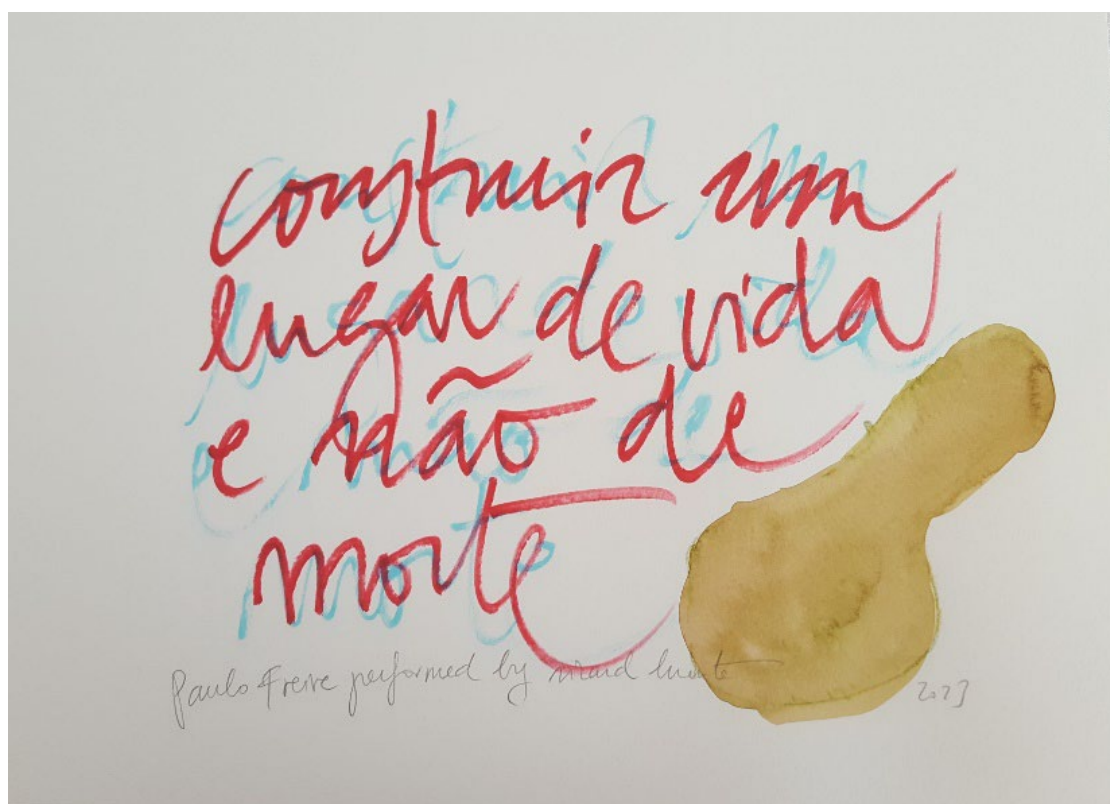 construir um
lugar de vida
e não de
morte
Paulo Freire performed by
2023